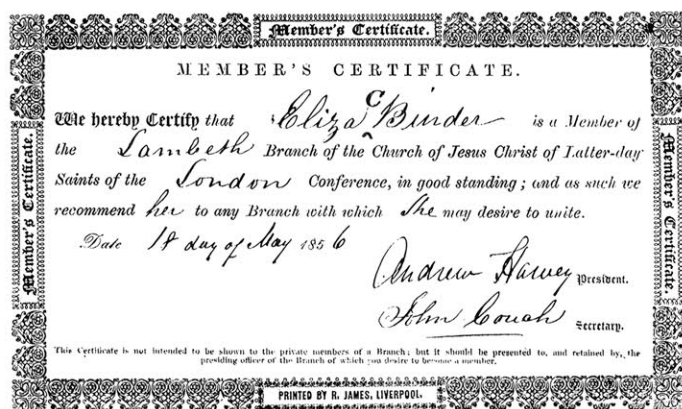 Member's Certificate.
MEMBER'S CERTIFICATE.
We hereby Certify that Eliza C Binder is a Member of
the Lambeth Branch of the Church of Jesus Christ of Latter-day
Saints of the London Conference, in good standing; and as such we
recommend her to any Branch with which She may desire to unite.
Date 18 day of May 1856
Andrew Harvey President.
John Couch Secretary.
This Certificate is not intended to be shown to the private members of a Branch; but it should be presented to, and retained by, the
presiding officer of the Branch of which you desire to become a member.
PRINTED BY R. JAMES, LIVERPOOL.
Member's Certificate.
Member's Certificate.